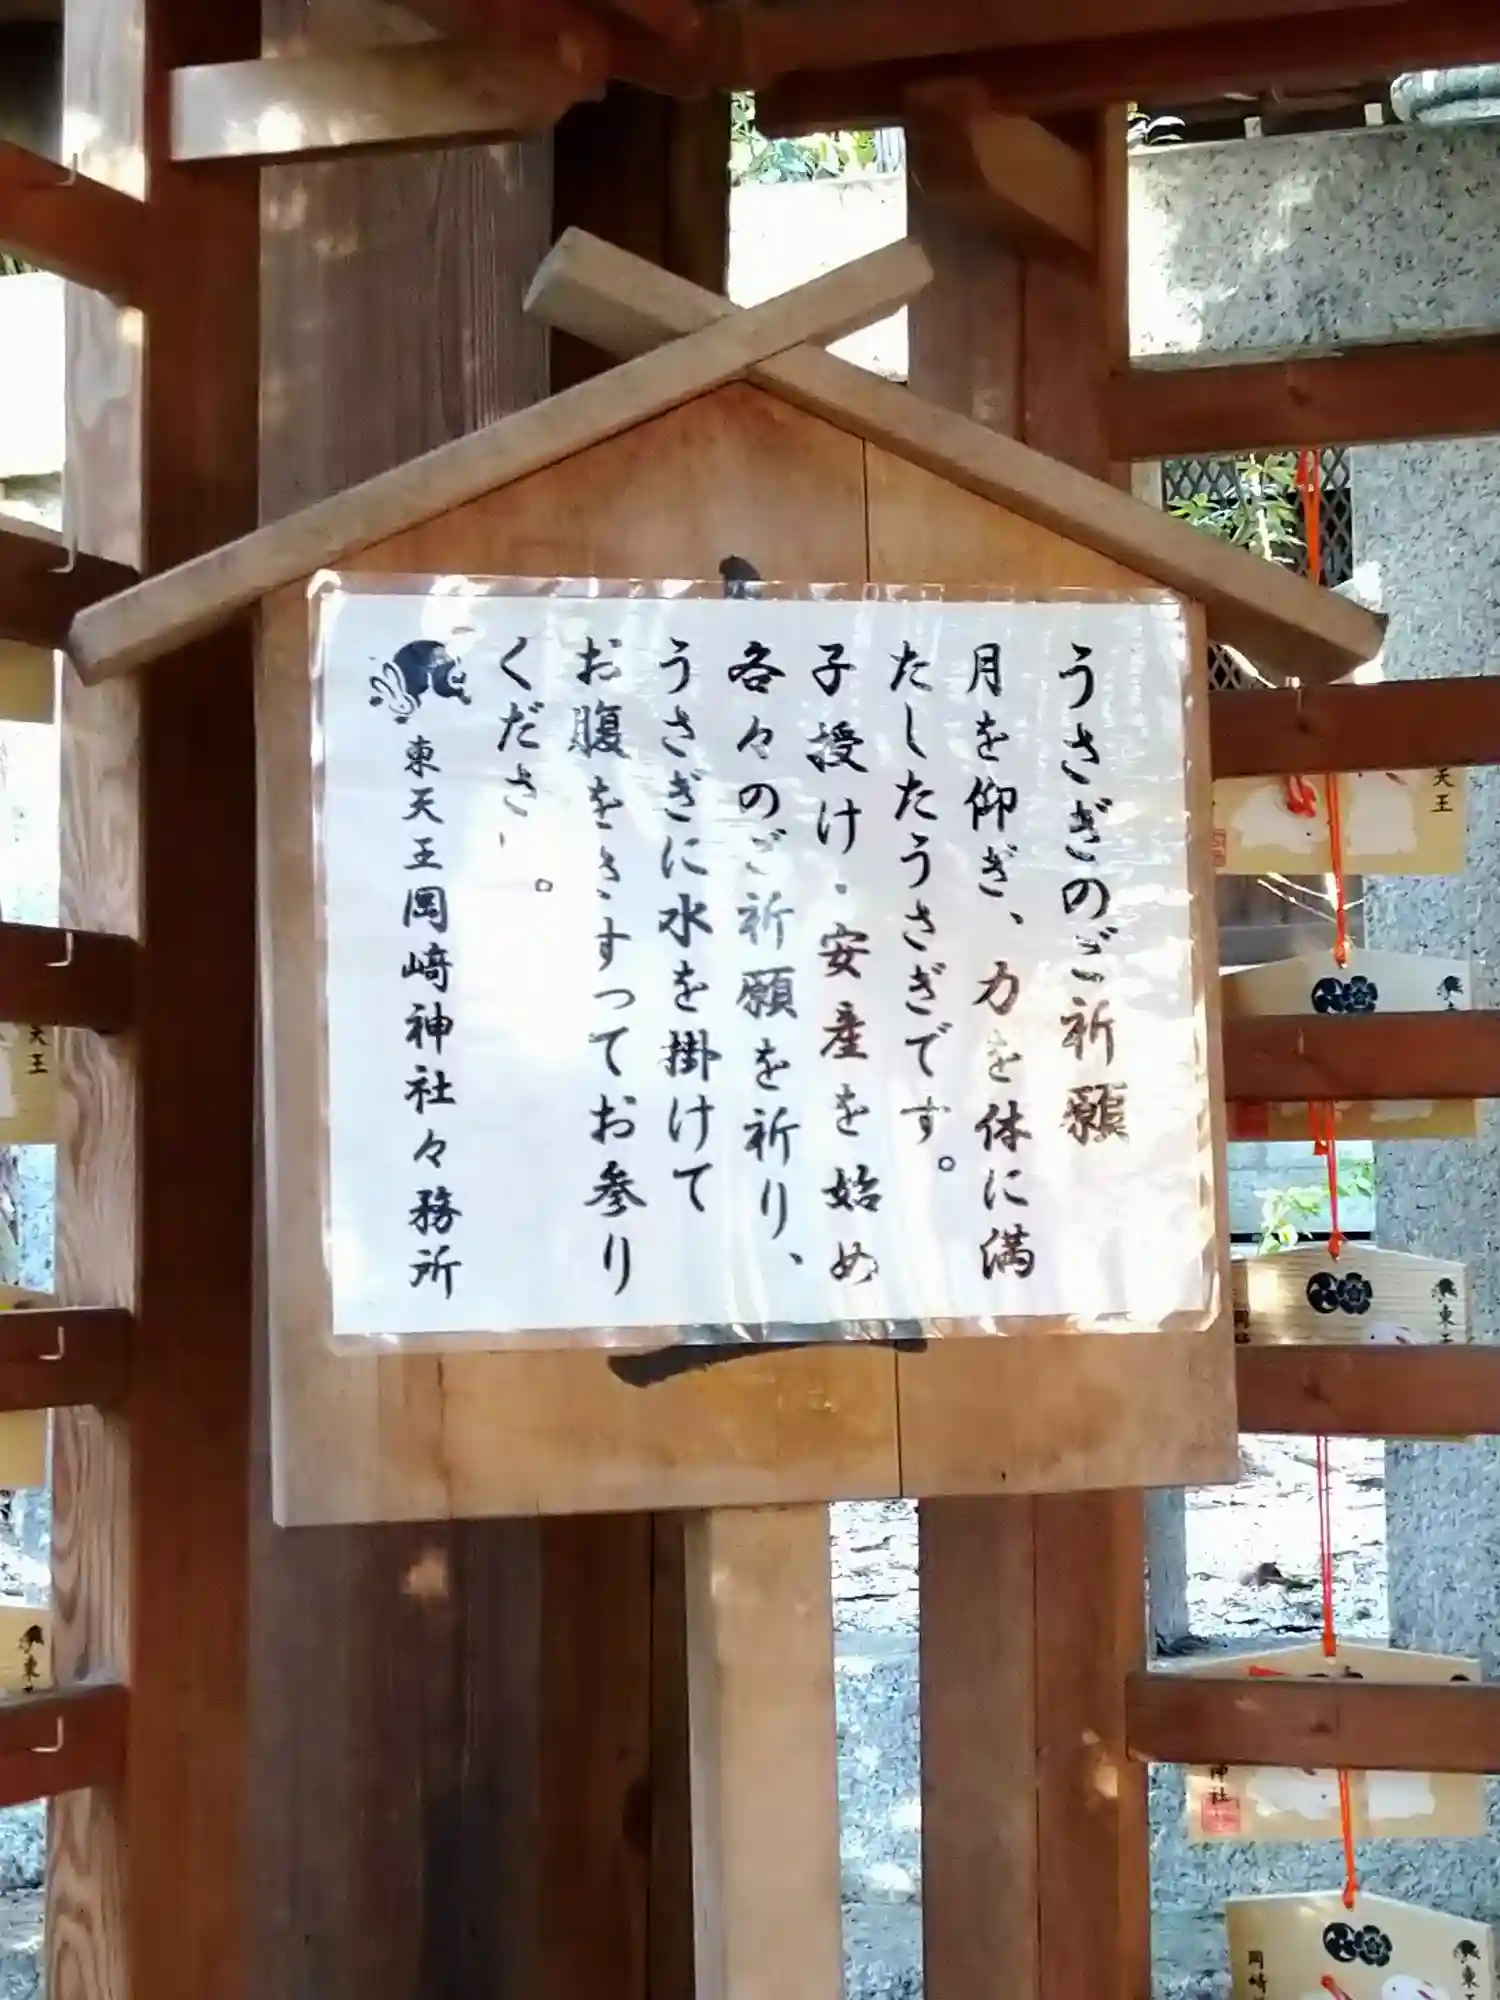 うさぎのご祈願
月を仰ぎ、力を体に満
たしたうさぎです。
子授け・安産を始め
各々のご祈願を祈り、
うさぎに水を掛けて
お腹をさすってお参り
ください。
東天王岡﨑神社々務所
天王
東
東王
岡﨑
神社
岡﨑
東
天王
東